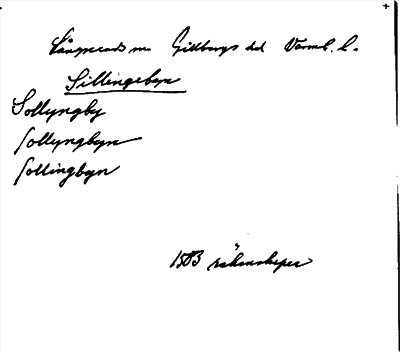 Långserud sn Gillbergs hd Värml. l.
Sillingebyn
Sollyngby
Sollyngbyn
Sollingbyn
1503 räkenskaper